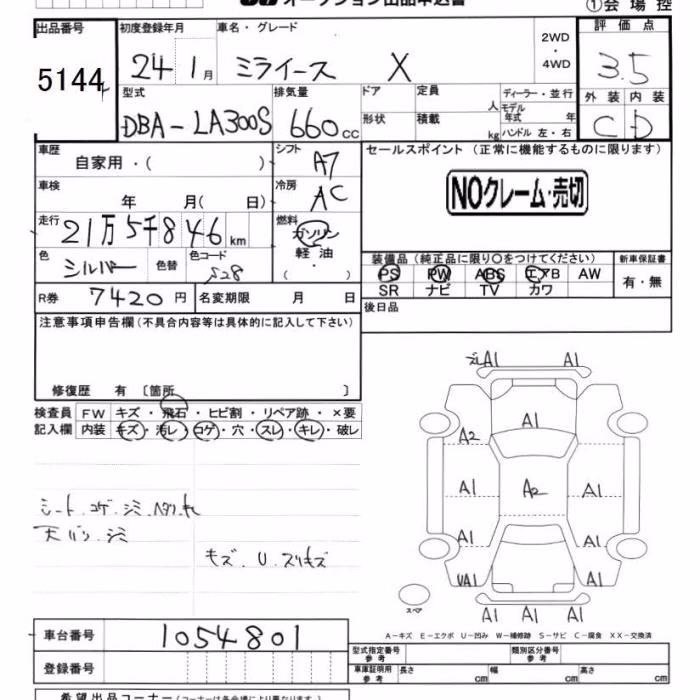 オークション出品申込書
①会場控
出品番号 初度登録年月 車名・グレード 2WD・4WD 評価点
5144 24 1月 ミライース X 3.5
型式 排気量 ドア 定員 人 ディーラー・並行 外装 内装
DBA-LA300S 660cc 形状 積載 kg モデル年式 年 ハンドル 左・右 C D
車歴 シフト セールスポイント (正常に機能するものに限ります)
自家用・( ) A7
車検 冷房 NOクレーム・売切
年 月( 日) AC
走行 燃料
21万5千846km ガソリン
軽油
( ・ )
色 シルバー 色替 色コード S28
装備品(純正品に限り○をつけてください) 新車保証書
PS PW ABS エアB AW 有・無
SR ナビ TV カワ
R券 7420円 名変期限 月 日
後日品
注意事項申告欄(不具合内容等は具体的に記入して下さい)
修復歴 有 〔箇所 〕
検査員 FW キズ・飛石・ヒビ割・リペア跡・×要
記入欄 内装 キズ・汚レ・コゲ・穴・スレ・キレ・破レ
シート コゲ シミ
天バリ シミ
キズ U スリキズ
A1 A1
A1
A2
A1 A2 A1
A1 A1
UA1 A1
A1 A1 A1
スペア
A-キズ E-エクボ U-凹み W-補修跡 S-サビ C-腐食 XX-交換済
車台番号 1054801
登録番号
型式指定番号 参考 類別区分番号 参考
車庫証明用 参考 長さ cm 幅 cm 高さ cm
希望出品コーナー(コーナーは各会場により異なります。)